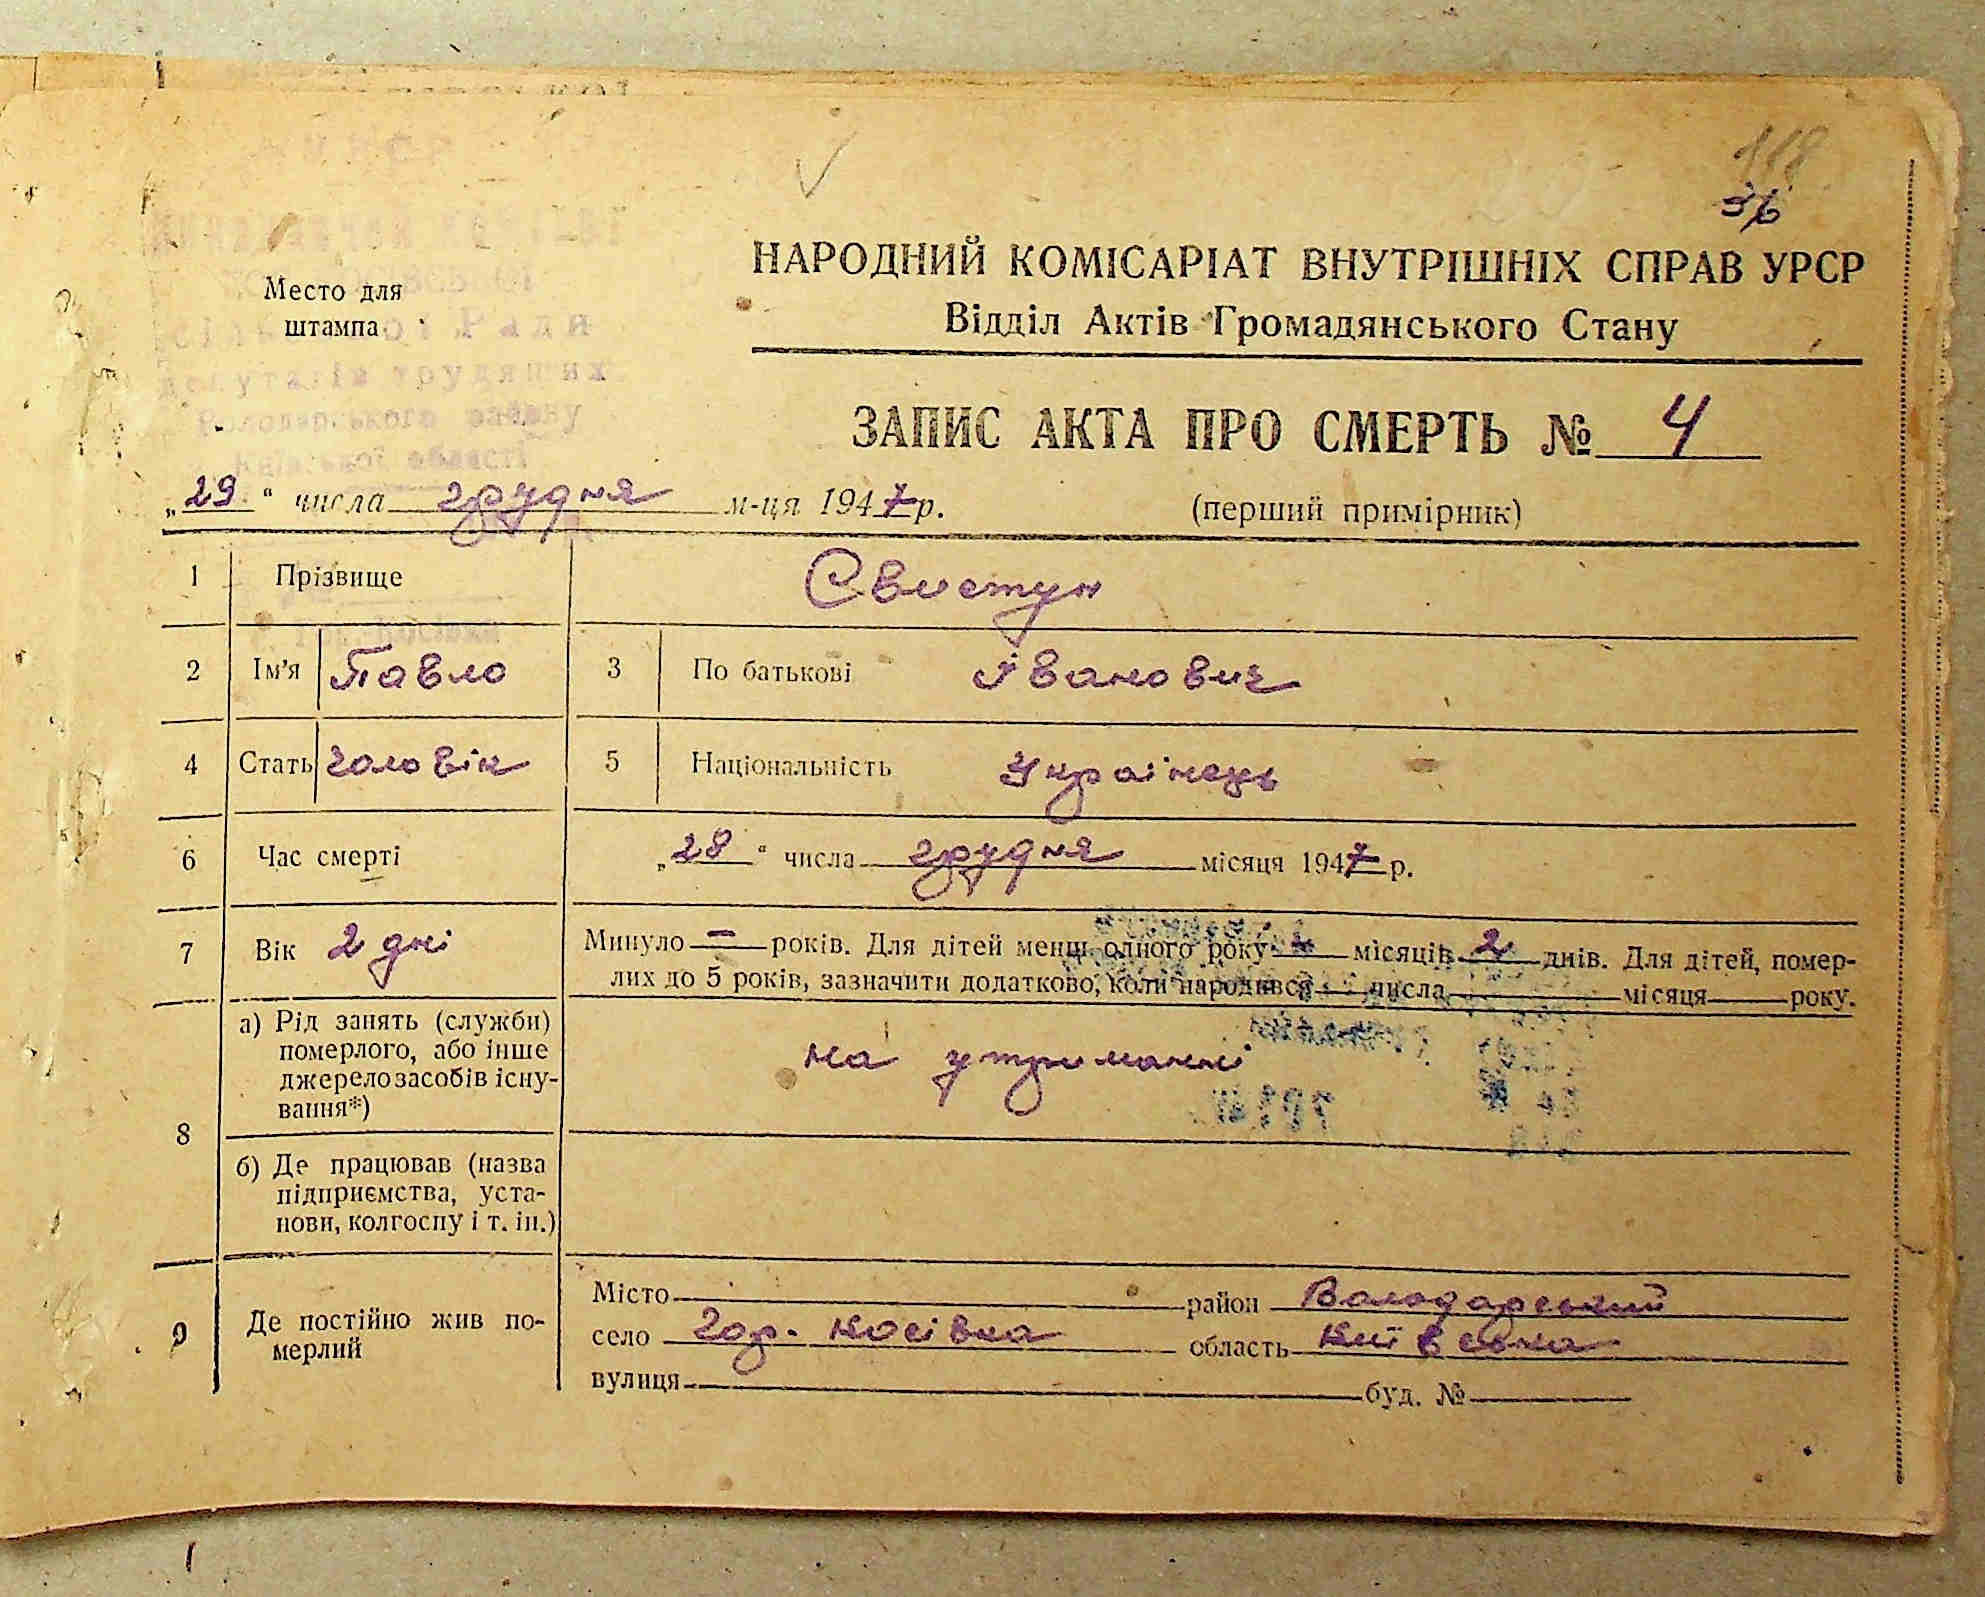 118
36
НАРОДНИЙ КОМІСАРІАТ ВНУТРІШНІХ СПРАВ УРСР
Відділ Актів Громадянського Стану
Место для
штампа
сільської Ради
депутатів трудящих
Володарського району
Київської області
ЗАПИС АКТА ПРО СМЕРТЬ № 4
„29“ числа грудня м-ця 1947 р. (перший примірник)
1 Прізвище Свистун
Гор.-Косівка
2 Ім'я Павло 3 По батькові Іванович
4 Стать чоловік 5 Національність Українець
6 Час смерті „28“ числа грудня місяця 1947 р.
7 Вік 2 дні Минуло — років. Для дітей менш одного року місяців 2 днів. Для дітей, помер-
лих до 5 років, зазначити додатково, коли народився числа місяця року.
8 а) Рід занять (служби)
померлого, або інше
джерело засобів існу-
вання*)
на утриманні
б) Де працював (назва
підприємства, уста-
нови, колгоспу і т. ін.)
9 Де постійно жив по-
мерлий
Місто район Володарський
село Гор. Косівка область Київська
вулиця буд. №